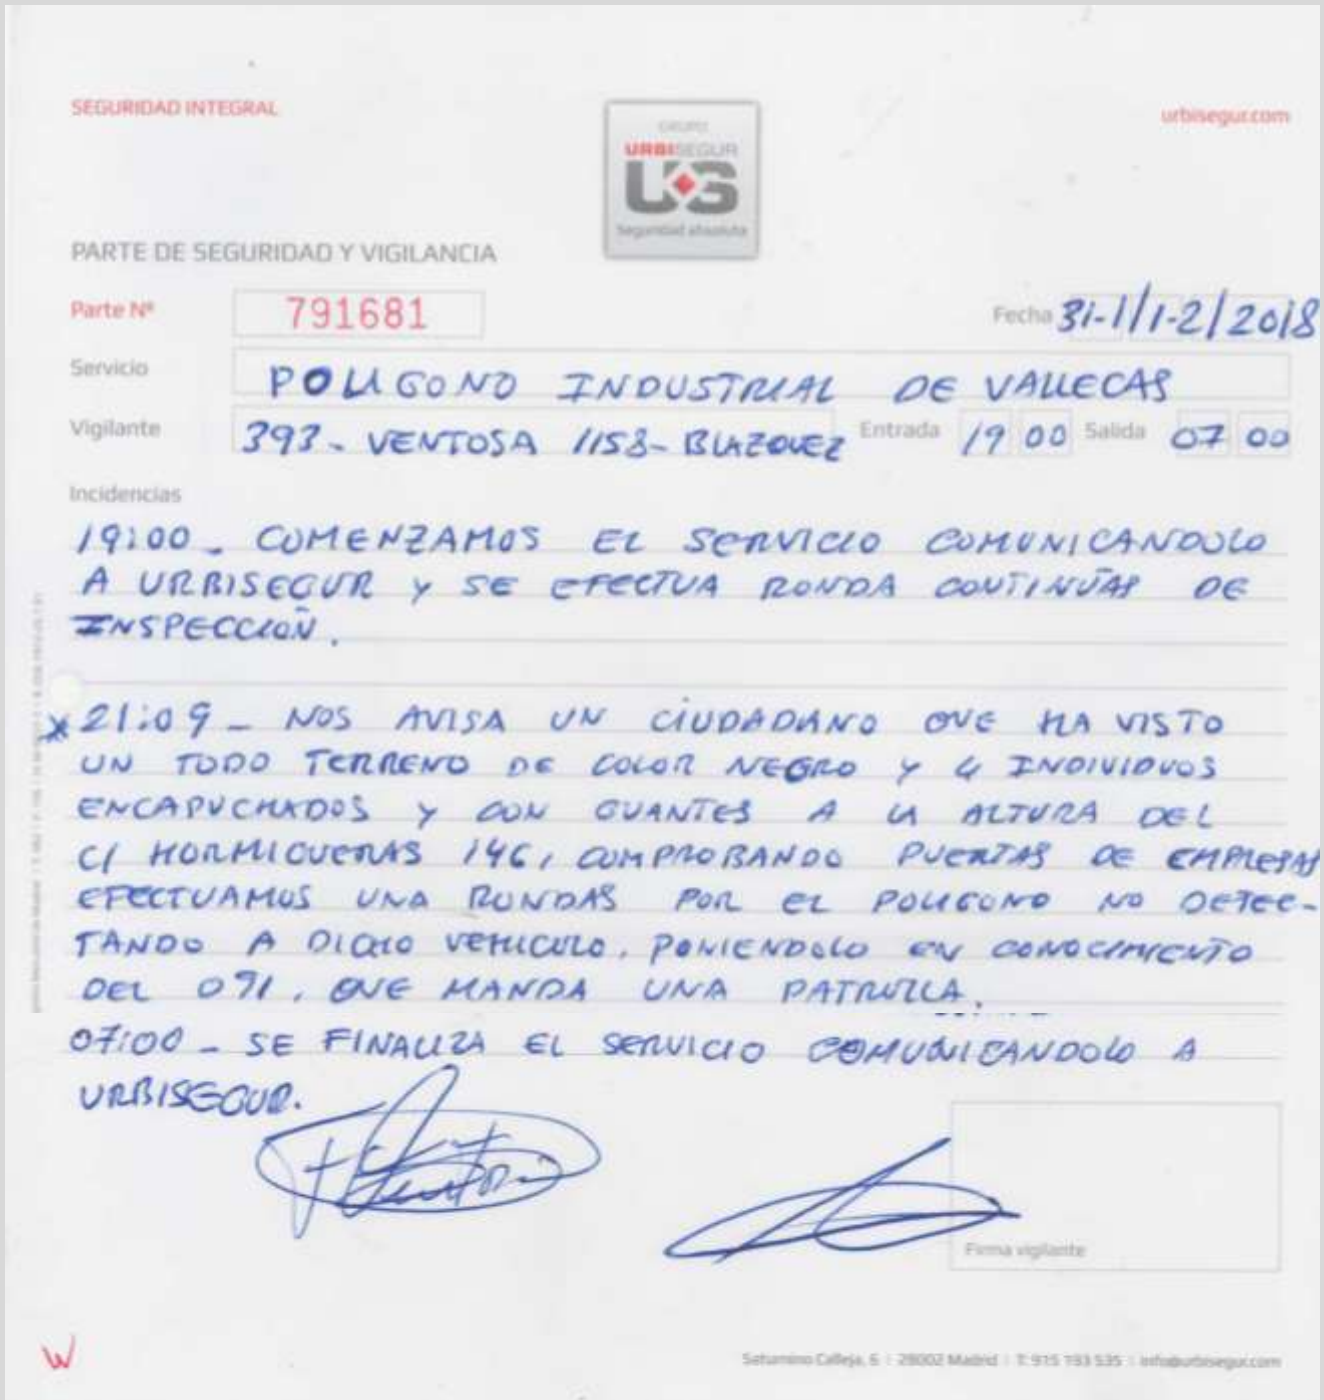 SEGURIDAD INTEGRAL
urbisegur.com
GRUPO
URBISEGUR
UGS
Seguridad absoluta
PARTE DE SEGURIDAD Y VIGILANCIA
Parte Nº 791681 Fecha 31-1/1-2/2018
Servicio POLIGONO INDUSTRIAL DE VALLECAS
Vigilante 393- VENTOSA 1158- BLAZQUEZ Entrada 19 00 Salida 07 00
Incidencias
19:00 - COMENZAMOS EL SERVICIO COMUNICANDOLO
A URBISEGUR Y SE EFECTUA RONDA CONTINUAS DE
INSPECCIÓN.
* 21:09 - NOS AVISA UN CIUDADANO QUE HA VISTO
UN TODO TERRENO DE COLOR NEGRO Y 4 INDIVIDUOS
ENCAPUCHADOS Y CON GUANTES A LA ALTURA DEL
C/ HORMIGUERAS 146, COMPROBANDO PUERTAS DE EMPRESAS
EFECTUAMOS UNA RONDAS POR EL POLIGONO NO DETEC-
TANDO A DICHO VEHICULO. PONIENDOLO EN CONOCIMIENTO
DEL 091, QUE MANDA UNA PATRULLA.
07:00 - SE FINALIZA EL SERVICIO COMUNICANDOLO A
URBISEGUR.
Firma vigilante
Saturnino Calleja, 6 | 28002 Madrid | T: 915 193 535 | info@urbisegur.com